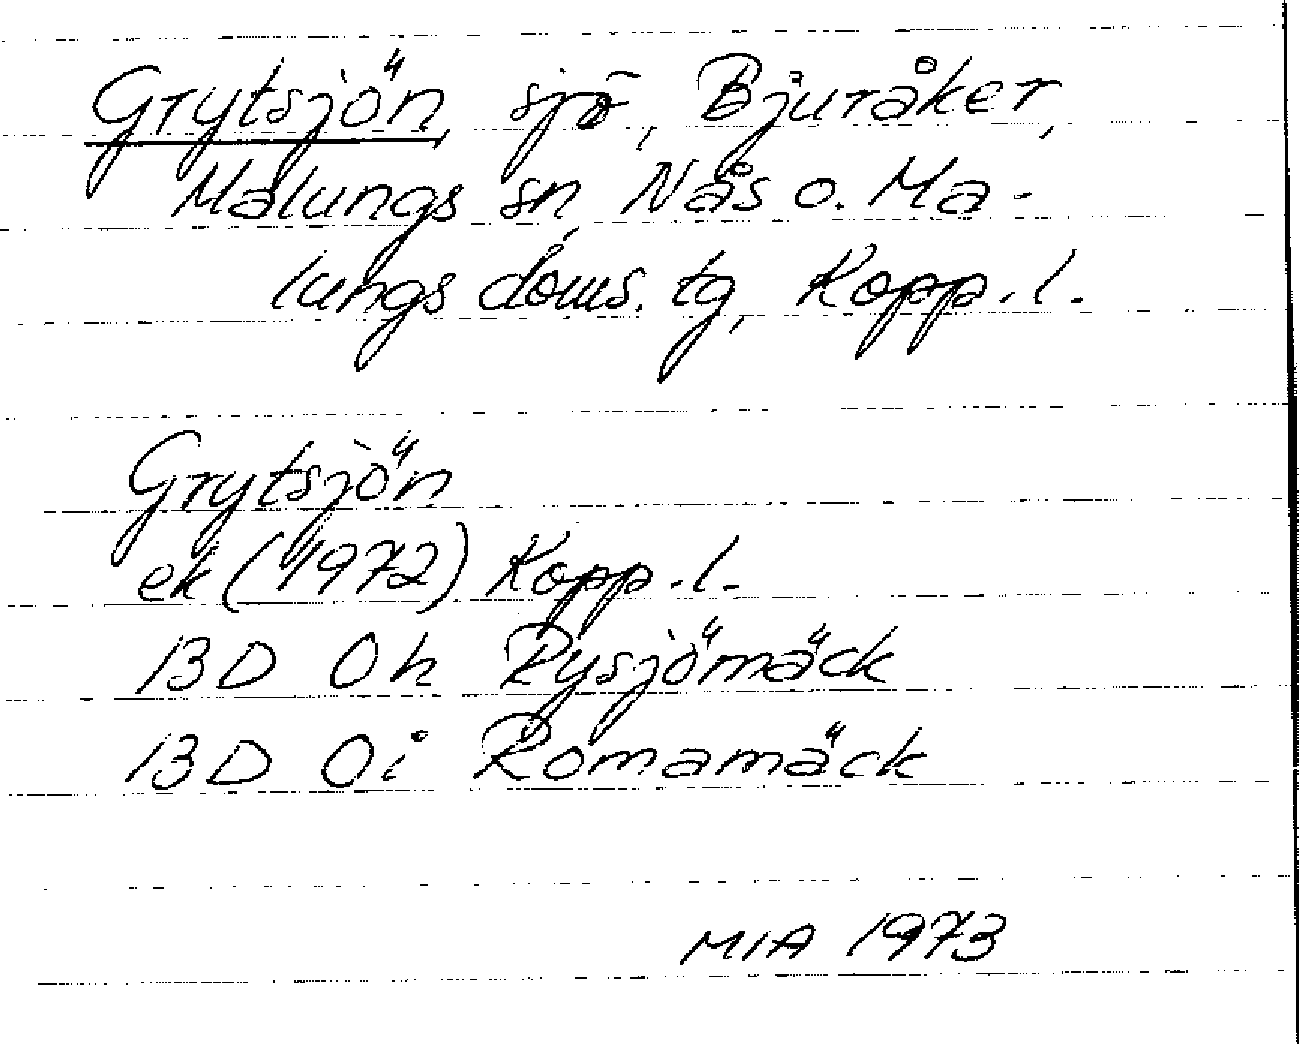 Grytsjön, sjö, Bjuråker,
Malungs sn, Nås o. Ma-
lungs doms. tg, Kopp. l.
Grytsjön
ek (1972) Kopp. l.
13D 0h Rysjömäck
13D 0i Romamäck
MIA 1973